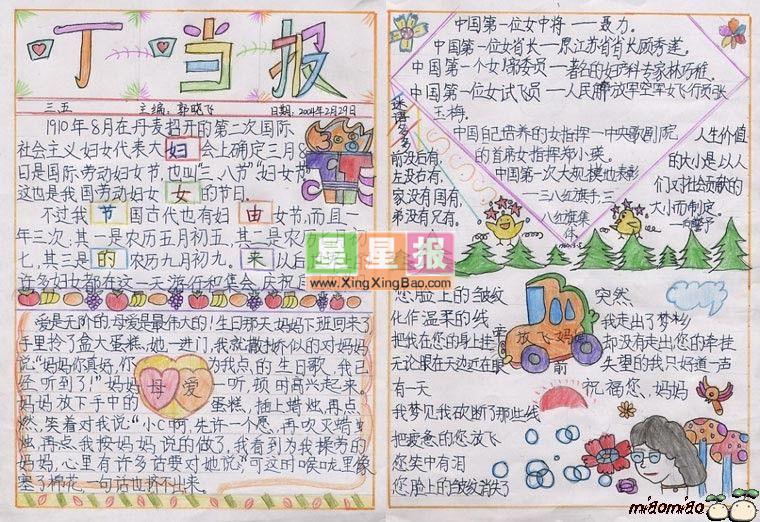 叮当报
三五 主编:郭晓飞 日期:2004年2月29日
1910年8月在丹麦招开的第二次国际
社会主义妇女代表大会上确定三月8
日是国际劳动妇女节,也叫“三八节”“妇女节”
这也是我国劳动妇女的节日。
妇
女
节
由
的
来
不过我国古代也有妇女节,而且一
年三次:其一是农历五月初五,其二是农
七,其三是农历九月初九。以后
许多妇女都在这一天游行和集会,庆祝
星星报
www.XingXingBao.com
爱是无价的,母爱是最伟大的!生日那天,妈妈下班回来了,
手里拎了盒大蛋糕,她一进门,我就撒娇似的对妈妈
说:“妈妈你真好,你为我点的,生日歌,我已
经听到了!”妈妈一听,顿时高兴起来。
母爱
妈妈放下手中的蛋糕,插上蜡烛,再点
然,笑着对我说:“小C啊,先许一个愿,再吹灭蜡
烛,再点我按妈妈说的做了,我看到为我操劳的
妈妈,心里有许多话要对她说;可这时喉咙里像
塞了棉花,一句话也挤不出来。
中国第一位女中将——聂力。
中国第一位女省长——原江苏省省长顾秀莲。
中国第一个女l席委员——著名的妇产科专家林巧稚。
中国第一位女试飞员——人民解放军空军女飞行员张
玉梅。
中国自己培养的女指挥——中央歌剧院
的首席女指挥郑小瑛。
中国第一次大规模地表彰
——三八红旗手,三
八红旗集
体。
谜语多多
前没后有,
左没右有,
家没有国有,
弟没有兄有。
人生价值
的大小是以人
们对社会贡献的
大小而制定。
您脸上的皱纹
化作温柔的线
把我在您的身上挂牵
无论眼在天边近在眼前
放飞妈妈
有一天
我梦见我砍断了那些线
把疲惫的您放飞
您笑中有泪
您脸上的皱纹消失了
突然,
我走出了梦乡
却没有走出您的牵挂
失望的我只好道一声
祝福您,妈妈
miaomiao